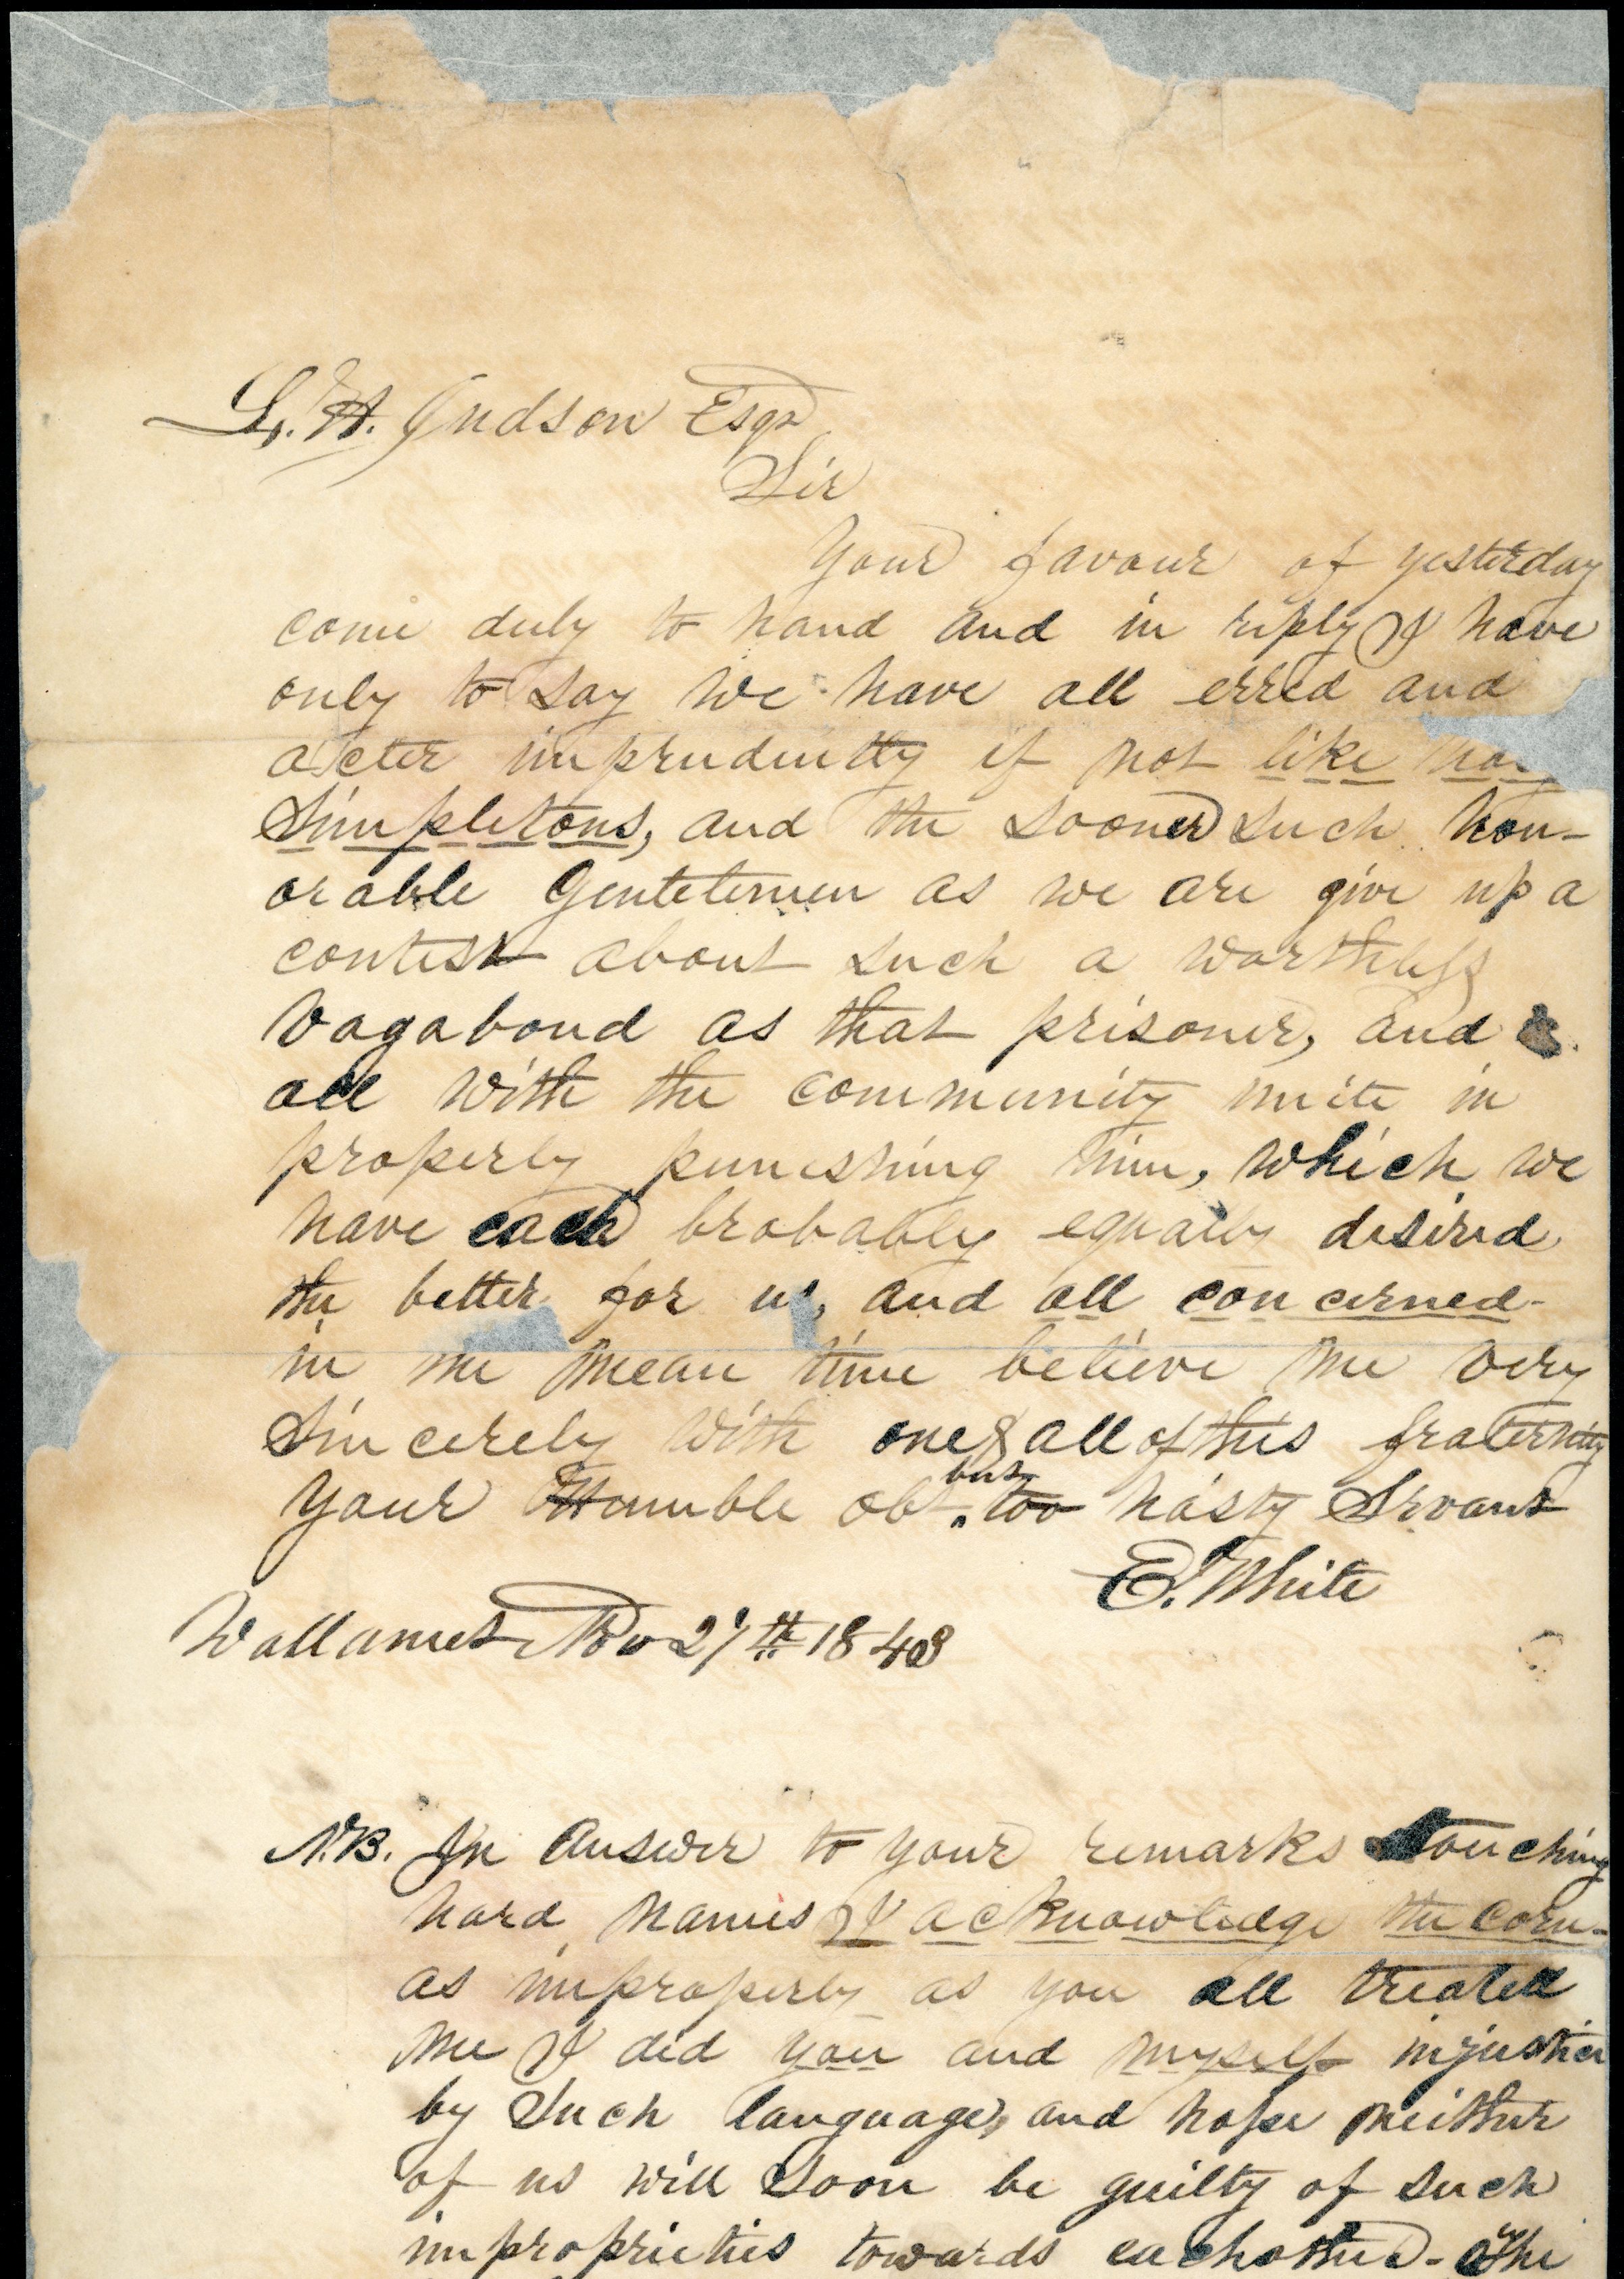 L. H. Judson Esqr
Sir
Your favour of yesterday
come duly to hand and in reply I have
only to say we have all erred and
acter imprudently if not like
Simpletons, and the sooner such hon-
orable Gentelemen as we are give up a
contest about such a worthless
vagabond as that prisoner, and
all with the community unite in
properly punishing him, which we
have each probably equally desired
the better for us, and all concerned-
in the mean time believe me very
Sincerely with one & all of this fraternity
your Humble obt but too hasty Servant
E. White
Wallamet Nov 27th 1843
N.B. In answer to your remarks touching
hard names I acknowledge the corn-
as improperly as you all treated
me I did you and myself injustice
by such language, and hope neither
of us will soon be guilty of such
improprieties towards eachother - The